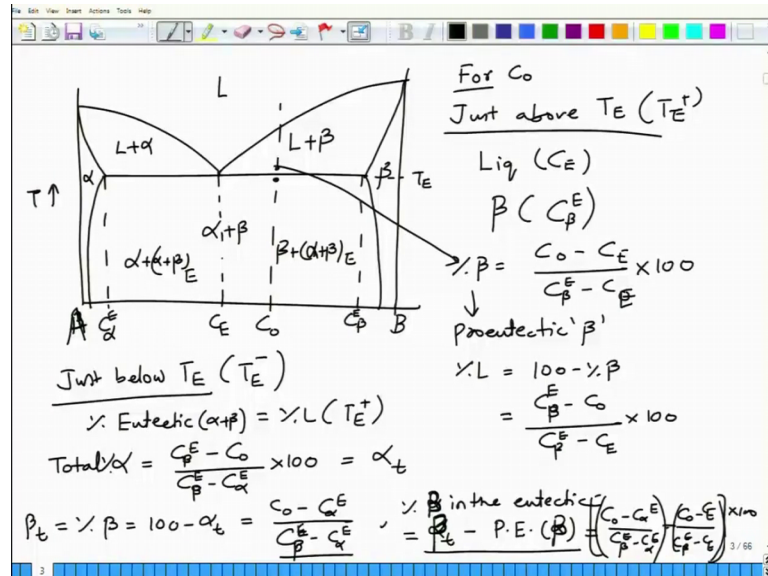 File Edit View Insert Actions Tools Help
L
L+α
L+β
α
β
T_E
T↑
α+β
α+(α+β)_E
β+(α+β)_E
A C_α^E C_E C_0 C_β^E B
For C_0
Just above T_E (T_E^+)
Liq (C_E)
β (C_β^E)
% β = (C_0 - C_E) / (C_β^E - C_E) × 100
proeutectic 'β'
% L = 100 - % β
= (C_β^E - C_0) / (C_β^E - C_E) × 100
Just below T_E (T_E^-)
% Eutectic (α+β) = % L (T_E^+)
Total % α = (C_β^E - C_0) / (C_β^E - C_α^E) × 100 = α_t
β_t = % β = 100 - α_t = (C_0 - C_α^E) / (C_β^E - C_α^E)
% β in the eutectic
= β_t - P.E. (β) = ((C_0 - C_α^E) / (C_β^E - C_α^E) - (C_0 - C_E) / (C_β^E - C_E)) × 100
3 / 66
3